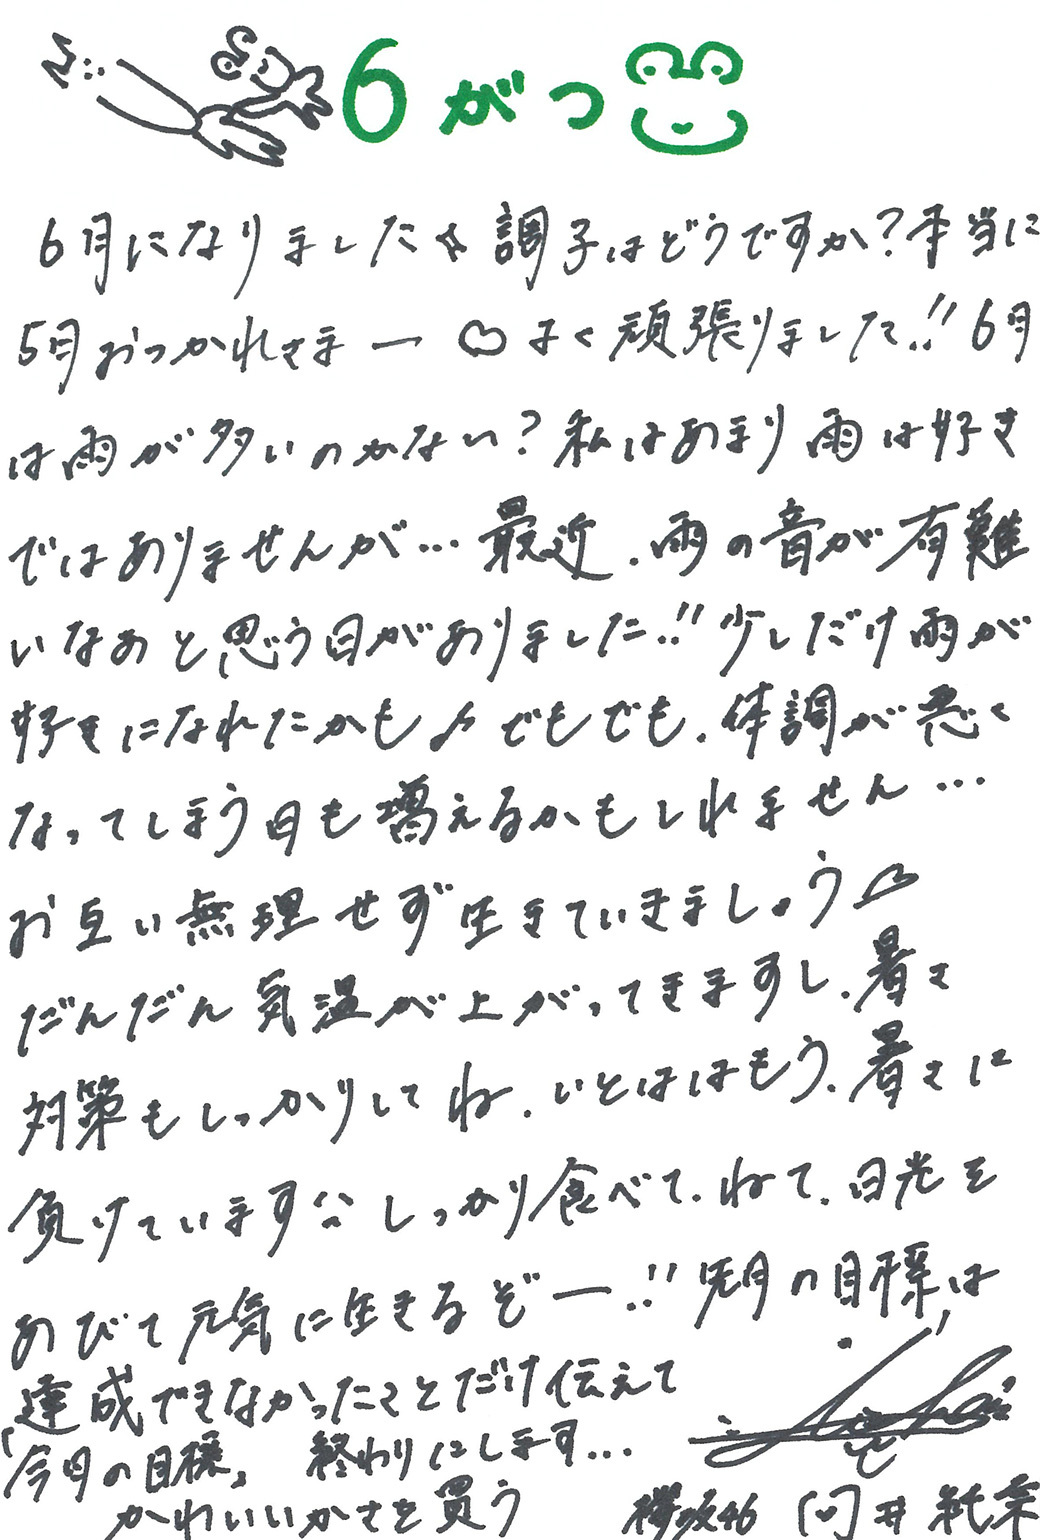 6がつ
6月になりました☆調子はどうですか?本当に
5月おつかれさまー♡よく頑張りました!!6月
は雨が多いのかない?私はあまり雨は好き
ではありませんが…最近、雨の音が有難
いなぁと思う日がありました!!少しだけ雨が
好きになれたかも♪でもでも、体調が悪く
なってしまう日も増えるかもしれません…
お互い無理せず生きていきましょう♡
だんだん気温が上がってきますし、暑さ
対策もしっかりしてね、いとははもう、暑さに
負けています しっかり食べて、ねて、日光を
あびて元気に生きるぞー!!先月の目標は
達成できなかったことだけ伝えて
終わりにします…
「今月の目標」
かわいいかさを買う
櫻坂46 向井純葉